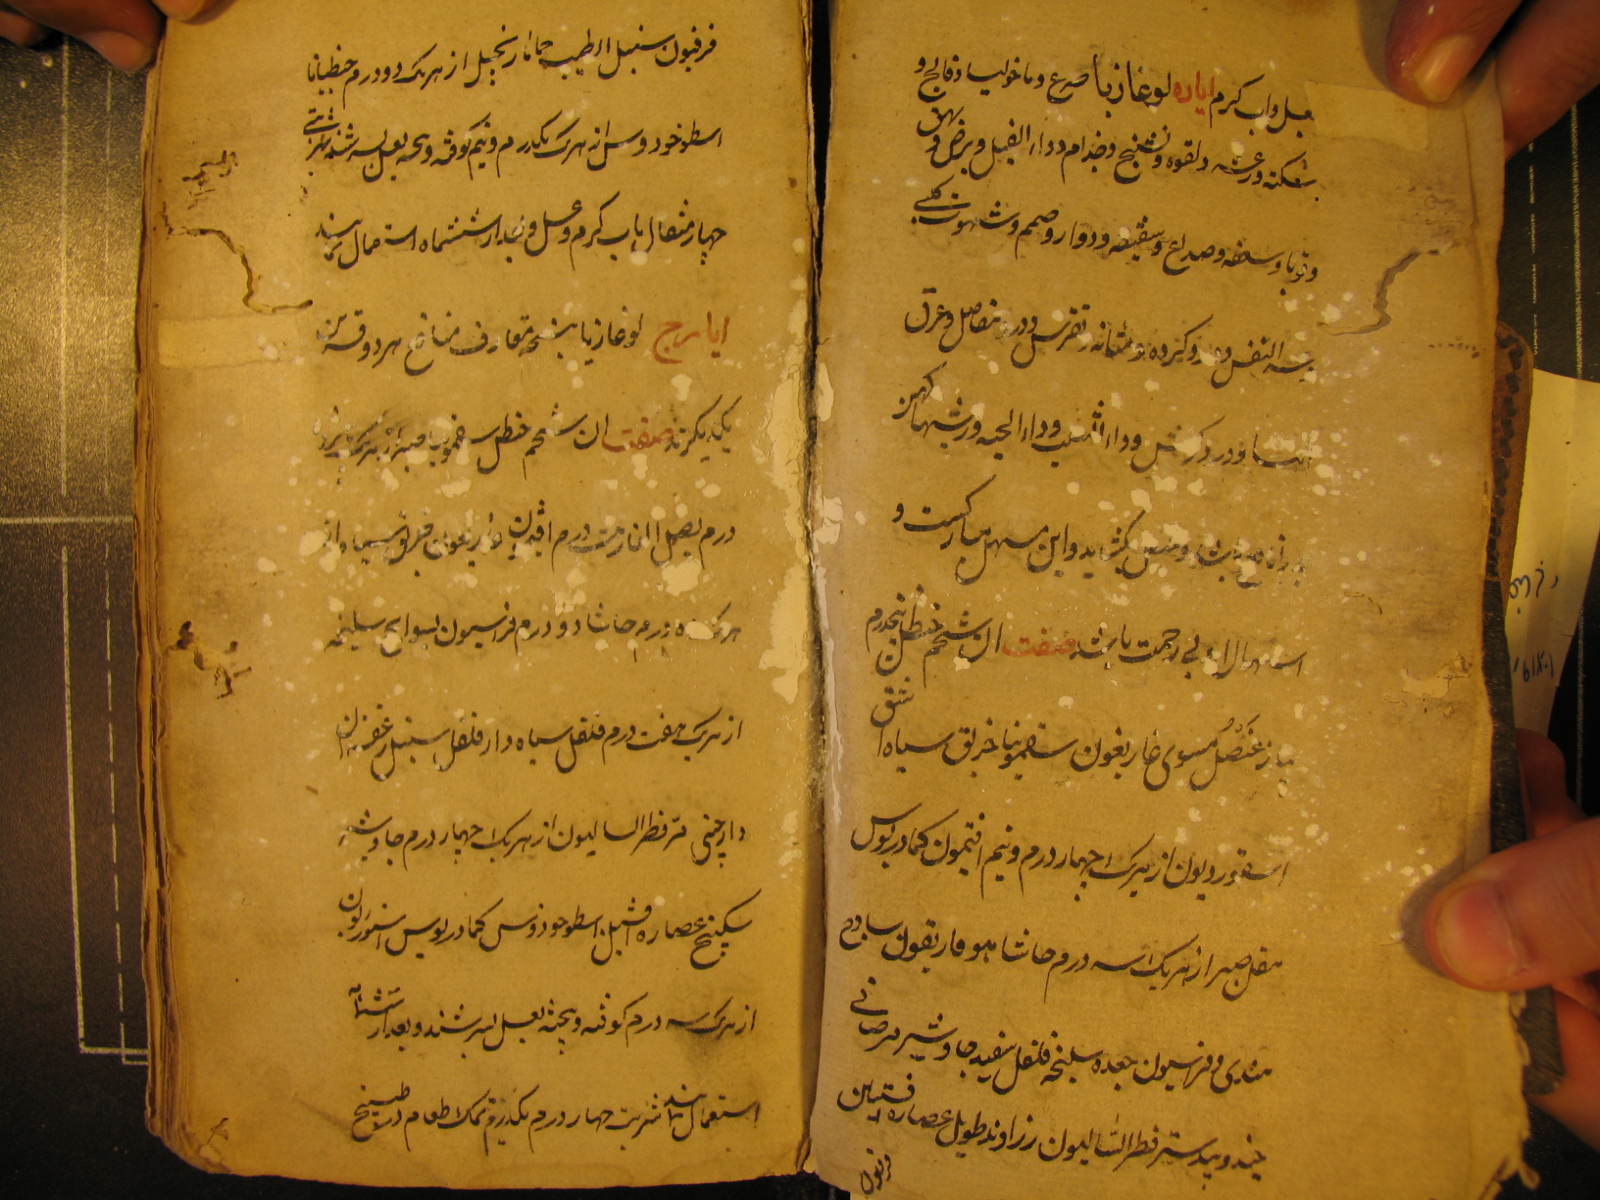 بعسل و آب کرم ایاره لوغاذیا صرع و ماخولیا و فالج و
سکته و رعشه و لقوه و تشنج و جذام و داء الفیل و برص و بهق
و قوبا و سعفه و صداع و شقیقه و دوار و صمم و شهوت کلبی
عسر النفس و درد کرده و مثانه و نقرس و درد مفاصل و عرق
النسا و درد کوش و داء الثعلب و داء الحیه و ریشهای کهن
و حیض بکشاید و این مسهل مبارکست و
اسهال او بی زحمت باشد صفت آن شحم حنظل پنجدرم
پیاز عنصل مشوی غاریقون سقمونیا خربق سیاه اشق
اسقوردیون از هریک چهار درم و نیم افتیمون کمادریوس
مقل صبر از هریک سه درم حاشا هوفاریقون ساذج
هندی فراسیون جعده سلیخه فلفل سفید جاوشیر مر صافی
جندبیدستر فطراسالیون زراوند طویل عصاره افسنتین
فرفیون
فرفیون سنبل الطیب حماما زنجبیل از هریک دو درم جنطیانا
اسطوخودوس از هریک یکدرم و نیم کوفته و بیخته بعسل بسرشند شربتی
چهار مثقال بآب کرم و عسل و بعد از ششماه استعمال نمایند
ایارج لوغاذیا بنسخه متعارف منافع هر دو قریب
یکدیکرند صفت آن شحم حنظل سقمونیا صبر از هریک
درم بصل الفار هشت درم افتیمون غاریقون خربق سیاه از
هریک ده درم حاشا دو درم فراسیون بسفایج سلیخه
از هریک هفت درم فلفل سیاه دارفلفل سنبل زعفران
دارچینی مر فطراسالیون از هریک چهار درم جاوشیر
سکبینج عصاره افسنتین اسطوخودوس کمادریوس اسقوردیون
از هریک سه درم کوفته و بیخته بعسل بسرشند و بعد از ششماه
استعمال نمایند شربت چهار درم یکدرم نمک طعام در طبیخ